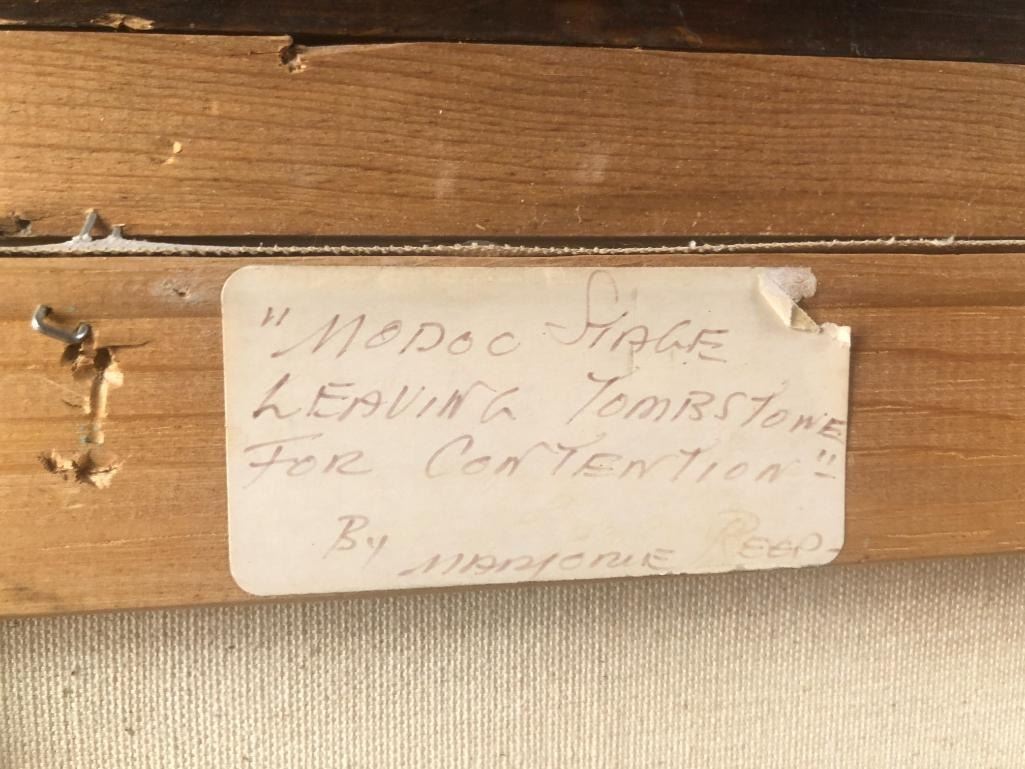 "MODOC STAGE
LEAVING TOMBSTONE
FOR CONTENTION"
By MARJORIE REED-